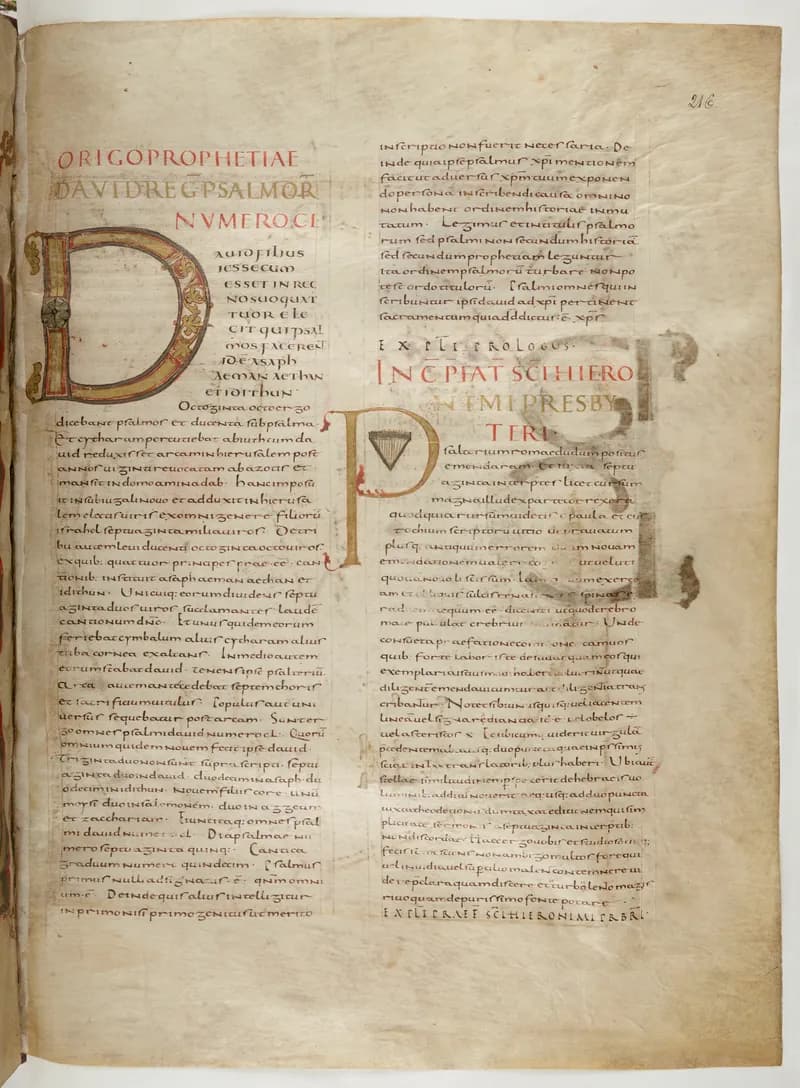 216
ORIGO PROPHETIAE
DAVID REḠ PSALMOR̄
NUMERO CL
DAUID FILIUS
IESSE CUM
ESSET IN REG
NO SUO QUAT
TUOR ELE
GIT QUI PSAL
MOS FACEREN̄
ID E ASAPH
AEMAN AETHAN
ET IDITHUN·
Octoginta octo ergo
dicebant psalmos et ducenta subpsalma
Et cytharam percutiebat abiuth cum da
uid reduxisset arcam in hierusalem post
annos uiginti reuocatam ab azotis et
mansit in domo aminadab· hanc imposu
it in subiugali nouo et adduxit in hierusa
lem electis uiris ex omni genere filiorū
israhel septuaginta milia uiros· De tri
bu autem leui ducenti octoginta octo uiros
ex quib; quattuor principes praeēē can
tionib; instituit asaph aeman aethan et
idithun· Unicuiq; eorum diuidens septu
aginta duo uiros succlamantes laudē
cantionum dnō· Et unusquidem eorum
feriebat cymbalum alius cytharam alius
tuba cornea exaltans· In medio autem
eorum stabat dauid· tenens ipse psalteriū
Arca autem antecedebat septem choris
et sacrificium uitulus· Populus autem uni
uersus sequebatur post arcam· Sunt er
go omnes psalmi dauid numero cl· Quorū
omnium quidem nouem fecit ipse dauid·
Triginta duo non sunt suprascripti· septu
aginta duo in dauid duodecim in asaph du
odecim in idithun· nouem filiis core· unū
moysi duo in salomonem· duo in aggeum
et zacchariam· Fiunt itaq; omnes psal
mi dauid numero cl· Diapsalmae nu
mero septuaginta quinq;· Cantica
graduum numero quindecim· Psalmus
primus nulli adsignatus ē· qnm omni
um ē· Deinde quis alius intellegitur
in primo nisi primogenitus ut merito
inscriptio non fuerit necessaria· De
inde quia ipse psalmus xp̄i mentionem
facit ut aduersus xpm̄ tuum exponen
do personā inscribendi causā omnino
non habent ordinem historiae inmu
tatum· Legimus et in titulis psalmo
rum sed psalmi non secundum historiā
sed secundum prophetiam leguntur
Ita ordinem psalmorū turbare non po
test ordo titulorū· Psalmi omnes qui in
scribuntur ipsi dauid ad xp̄i pertinent
sacramentum quia dd dictus ē xps
EXPLI PROLOGUS·
INCP̄ PRAEFAT̄ SC̄I HIERO
NIMI PRESBY
TERI·
Psalterium romae dudum positus
emendaram· Et iuxta septu
aginta interpretes licet cursim
magna illud ex parte correxerā
quod quia rursum uidetis o paula et eu
stochium scriptorū uitio deprauatum
plusq; antiquum errorem quam nouam
emendationem ualere cogitis ut ueluti
quodā nouali scissum iam aruum exerceā
am et obliquis sulcis renascentes spinas
radicem aequum ēē dicentes ut quod crebro
male pululat crebrius Unde
consueta praefatione com̄oneo tam uos
quib; forte labor iste desudat quam eos qui
exemplaria istiusmodi habere uoluerint ut quae
diligenter emendaui cum cura et diligentia tran
scribantur· Notet sibi unusquisq; uel iacentem
lineā uel signa radiantia id ē uel obelos ÷
uel asteriscos ※ Et ubicumq; uiderit uirgulā
praecedentem ab ea usq; ad duo puncta quae inpressimus
sciat in lxx translatorib; plus haberi· Ubi autē
stellae similitudinem perspexerit de hebraeis uo
luminib; additū nouerit aeq; usq; ad duo puncta
iuxta theodotionis dumtaxat editionem qui sim
plicitate sermonis a septuaginta interpretib;
non discordat· Haec ergo uobis et studioso cuiq;
fecisse me sciens non ambigo multos fore qui
uel inuidia uel supercilio malent contemnere ui
deri praeclara quam discere et turbulento magis
riuo quam de purissimo fonte potare
EXPLI PRAEF̄ SC̄I HIERONIMI PRBR̄I·